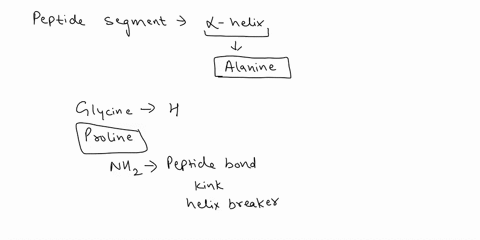 Peptide segment → α-helix
↓
Alanine
Glycine → H
Proline
NH2 → Peptide bond
kink
helix breaker